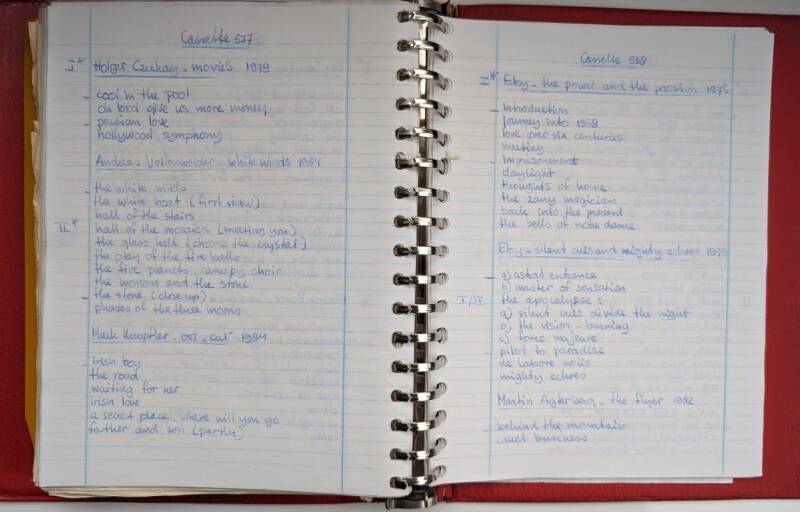 Cassette 537
I* Holger Czukay - movies 1979
- cool in the pool
oh lord give us more money
- persian love
hollywood symphony
Andreas Vollenweider - white winds 1984
- the white winds
the white boat (first view)
hall of the stairs
II* hall of the mosaics (meeting you)
the glass hall (choose the crystal)
the play of the five balls
the five planets, canopy choir
the woman and the stone
- the stone (close up)
phases of the three moons
Mark Knopfler - ost "cal" 1984
- irish boy
the road
waiting for her
irish love
a secret place, where will you go
father and son (partly)
Cassette 538
I* Eloy - the power and the passion 1975
- introduction
Journey into 1358
love over six centuries
mutiny
- imprisonment
daylight
thoughts of home
the zany magician
back into the present
the bells of notre dame
Eloy - silent cries and mighty echoes 1979
- a) astral entrance
b) master of sensation
I/II the apocalypse:
a) silent cries divide the night
b) the vision - burning
c) force majeure
pilot to paradise
de labore solis
mighty echoes
Martin - the flyer 1982
behind the mountain
cruel business